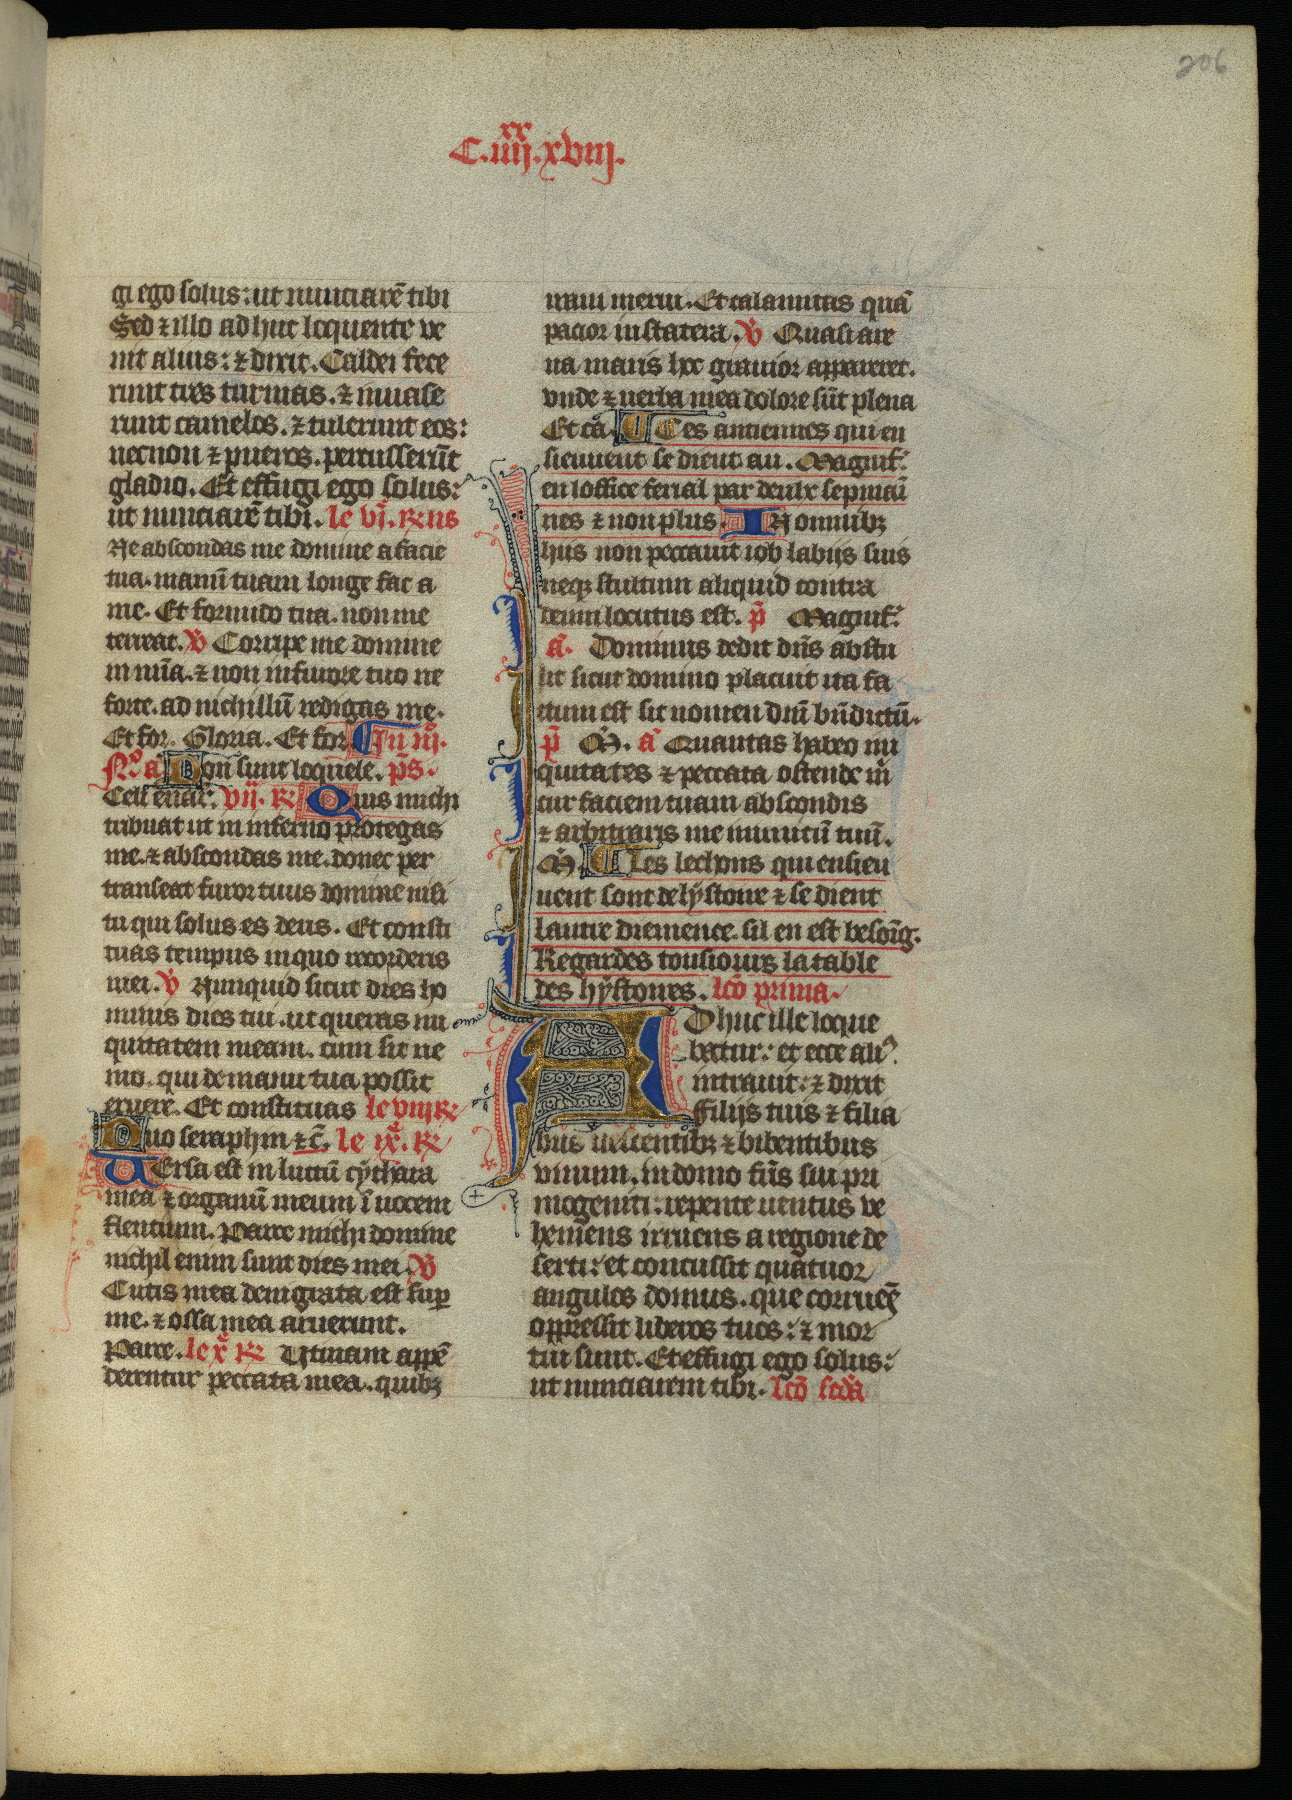 206
C.iiij.xviij.
xx
gi ego solus: ut nunciarē tibi
Sed ⁊ illo adhuc loquente ve
nit alius: ⁊ dixit. Caldei fece
runt tres turmas. ⁊ inuase
runt camelos. ⁊ tulerunt eos:
necnon ⁊ pueros. percusserūt
gladio. Et effugi ego solus:
ut nunciarē tibi. le vj. R us
Ne abscondas me domine a facie
tua. manū tuam longe fac a
me. Et formido tua. non me
terreat. V Corripe me domine
in mīa. ⁊ non in furore tuo ne
forte. ad nichillū redigas me.
Et for. Gloria. Et for. Cu iij.
No. a Non sunt loquele. ps.
Celi enar. vij. R Quis michi
tribuat ut in inferno protegas
me. ⁊ abscondas me. donec per
transeat furor tuus domine nisi
tu qui solus es deus. Et consti
tuas tempus in quo recorderis
mei. V Nunquid sicut dies ho
minis dies tui. ut queras ini
quitatem meam. cum sit ne
mo. qui de manu tua possit
eruere. Et constituas le viij R
Duo seraphin ⁊c̄. le ix. R
Uersa est in luctū cythara
mea ⁊ organū meum ī uocem
flentium. Parce michi domine
nichil enim sunt dies mei. V
Cutis mea denigrata est sup
me. ⁊ ossa mea aruerunt.
Parce. le x R Utinam appē
derentur peccata mea. quibꝫ
iram merui. Et calamitas quā
pacior in statera. V Quasi are
na maris hec grauior appareret.
vnde ⁊ uerba mea dolore sūt plena
Et cā. Ces antiennes qui en
sieuuent se dient au. Magnif.
en loffice ferial par deulx sepmai
nes ⁊ non plus. IN omnibꝫ
hiis non peccauit iob labijs suis
neqꝫ stultum aliquid contra
deum locutus est. p̄ Magnif.
a. Dominus dedit dn̄s abstu
lit sicut domino placuit ita fa
ctum est sit nomen dn̄i bn̄dictū.
p̄ M. a Quantas habeo ini
quitates ⁊ peccata ostende m̄
cur faciem tuam abscondis
⁊ arbitraris me inimicū tuū.
M. Les lechons qui ensieu
uent sont de lystoire ⁊ se dient
lautre diemence. sil en est besoīg.
Regardes tousiours la table
des hystoires. lcō prima.
Adhuc ille loque
batur: et ecce ali9
intrauit: ⁊ dixit
Filijs tuis ⁊ filia
bus uescentibꝫ ⁊ bibentibus
vinum. in domo fr̄is sui pri
mogeniti: repente uentus ve
hemens irruens a regione de
serti: et concussit quatuor
angulos domus. que corruēs
oppressit liberos tuos: ⁊ mor
tui sunt. Et effugi ego solus:
ut nunciarem tibi. lcō scd̄a